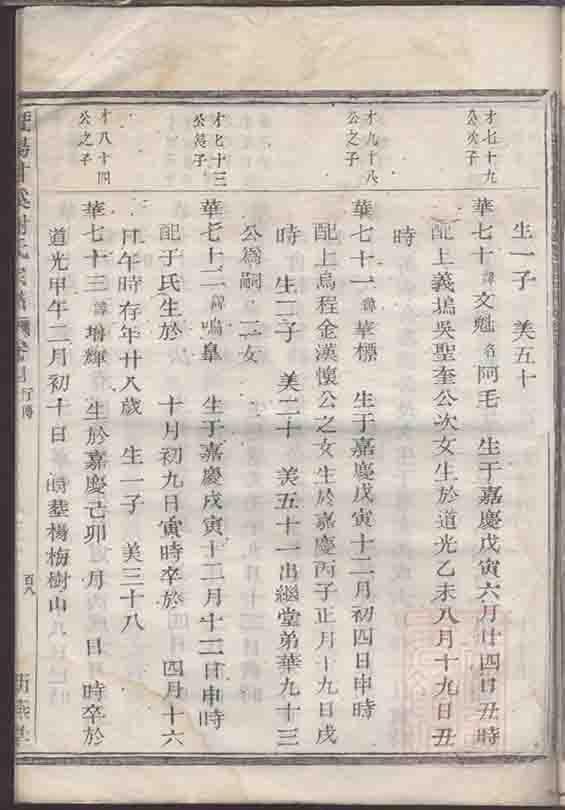 生一子　美五十
才七十九
公次子
華七十諱文魁名阿毛　生于嘉慶戊寅六月廿四日丑時
配上義塢吳聖奎公次女生於道光乙未八月十九日丑
時
才九十八
公之子
華七十一諱華標　生于嘉慶戊寅十二月初四日申時
配上烏程金漢懷公之女生於嘉慶丙子正月十九日戌
時　生二子　美二十　美五十一出繼堂弟華九十三
公為嗣　二女
才七十三
公 子
華七十二諱鳴皐　生于嘉慶戊寅十二月十二日申時
配于氏生於　十月初九日寅時卒於　四月十六
日午時存年廿八歲　生一子　美三十八
才八十四
公之子
華七十三諱增輝　生於嘉慶己卯　月　日　時卒於
道光甲午二月初十日　時塟楊梅樹山
氏宗譜 行傳
百八